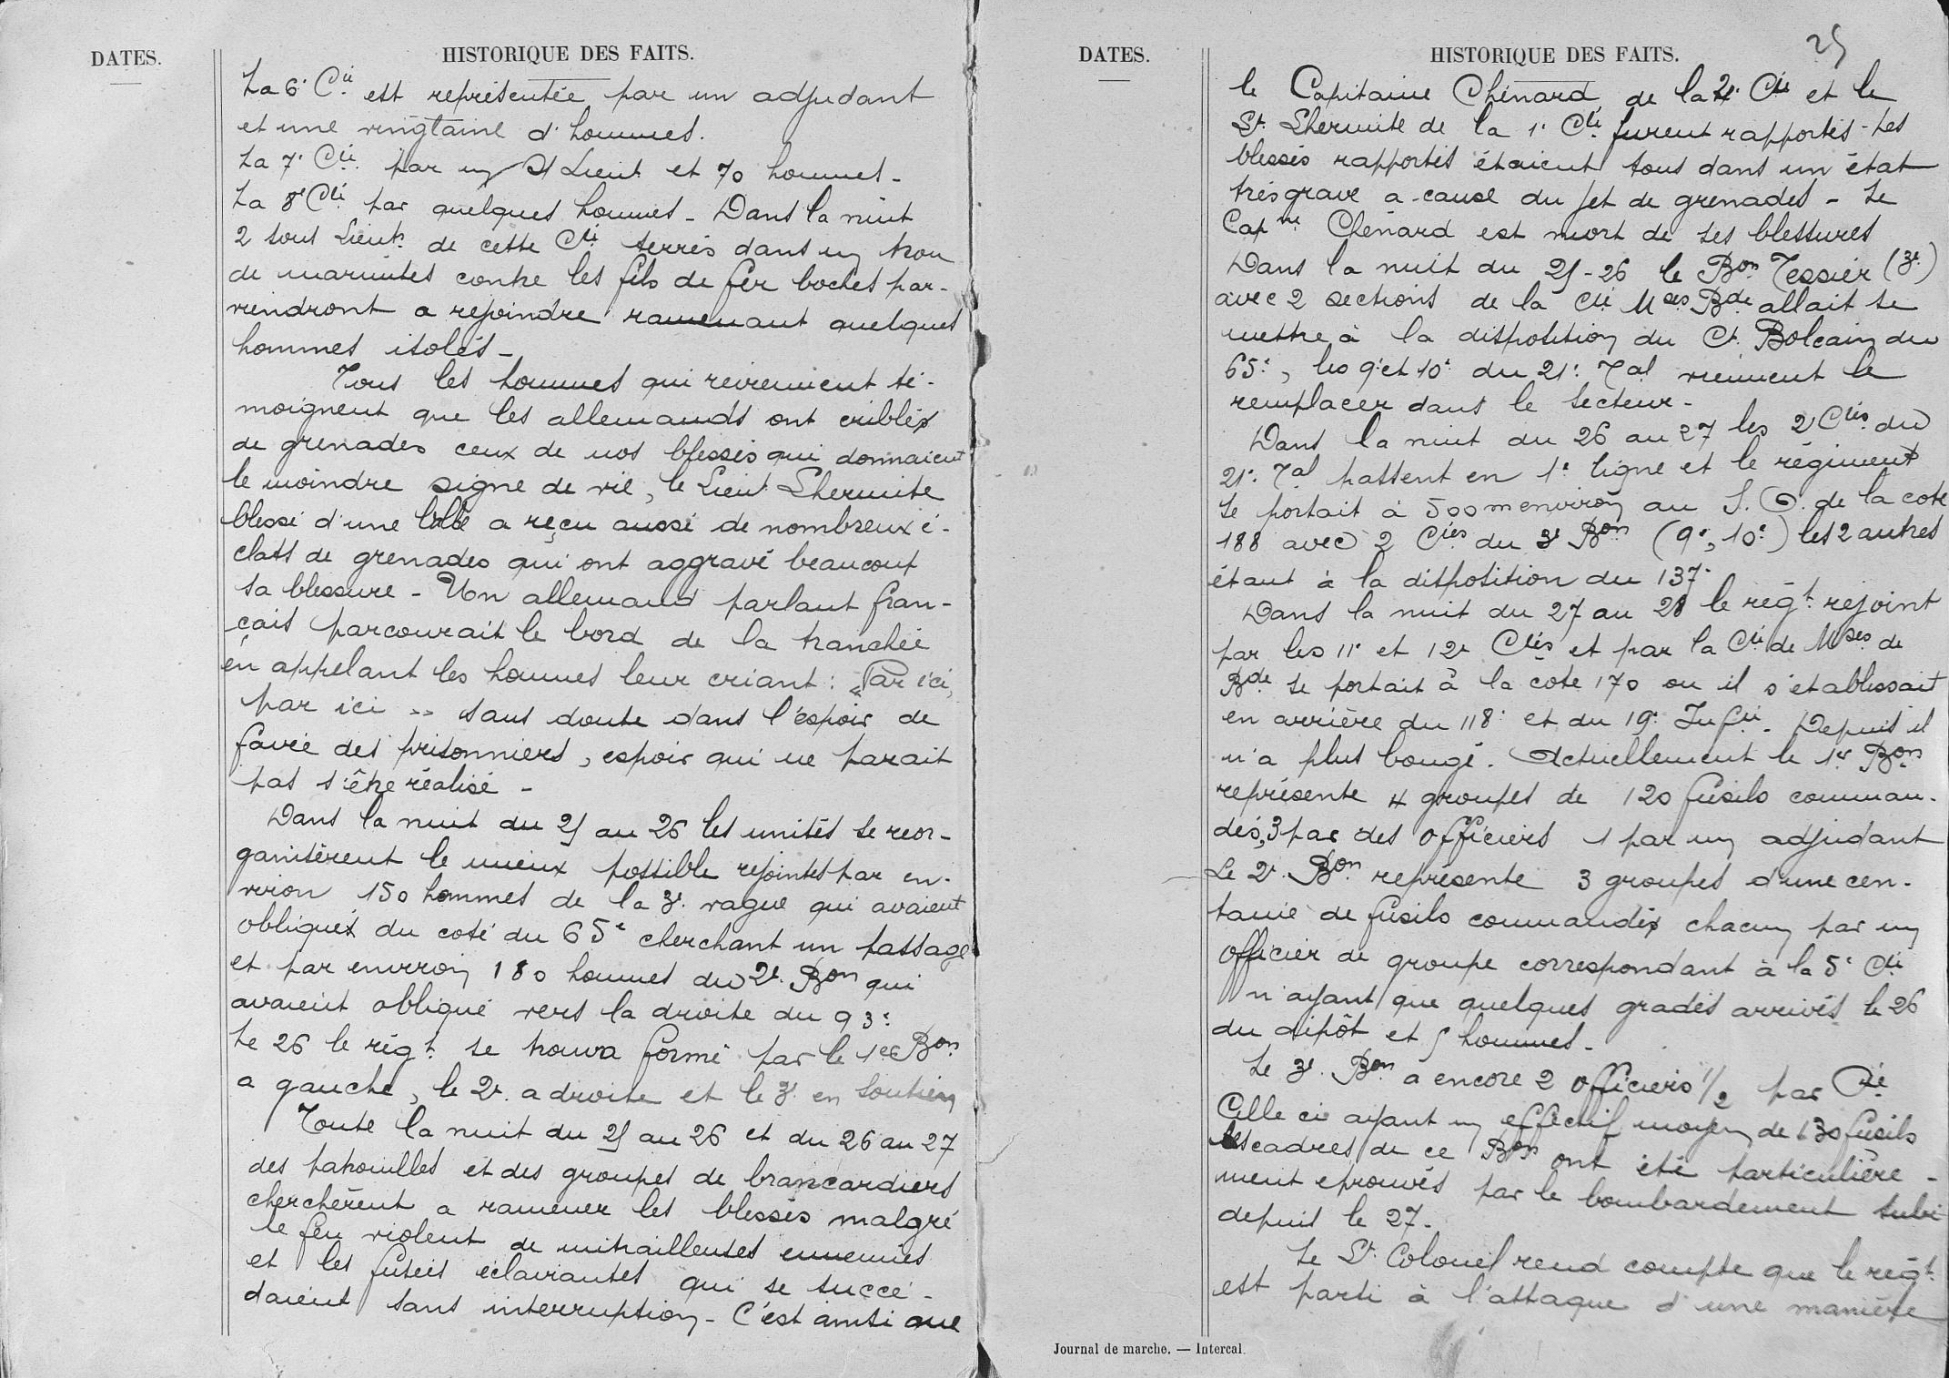 DATES.
HISTORIQUE DES FAITS.
La 6e Cie est représentée par un adjudant
et une vingtaine d'hommes.
La 7e Cie par un St Lieut et 70 hommes -
La 8e Cie par quelques hommes - Dans la nuit
2 sous Lieuts de cette Cie terrés dans un trou
de marmites contre les fils de fer boches par-
viendront a rejoindre ramenant quelques
hommes isolés -
Tous les hommes qui reviennent té-
moignent que les allemands ont criblés
de grenades ceux de nos blessés qui donnaient
le moindre signe de vie, le Lieut Lhermite
blessé d'une balle a reçu aussi de nombreux é-
clats de grenades qui ont aggravé beaucoup
sa blessure - Un allemand parlant fran-
çais parcourait le bord de la tranchée
en appelant les hommes leur criant : "Par ici,
par ici" sans doute dans l'espoir de
faire des prisonniers, espoir qui ne parait
pas s'être réalisé -
Dans la nuit du 25 au 26 les unités se réor-
ganisèrent le mieux possible rejointes par en-
viron 150 hommes de la 3e vague qui avaient
obliqués du coté du 65e cherchant un passage
et par environ 180 hommes du 2e Bon qui
avaient obliqué vers la droite du 93e
Le 26 le régt se trouva formé par le 1er Bon
a gauche, le 2e a droite et le 3e en soutien
Toute la nuit du 25 au 26 et du 26 au 27
des patrouilles et des groupes de brancardiers
cherchèrent a ramener les blessés malgré
le feu violent de mitrailleuses ennemies
et les fusées éclairantes qui se succé-
daient sans interruption - C'est ainsi que
DATES.
HISTORIQUE DES FAITS.
25
le Capitaine Chénard, de la 2e Cie et le
Lt Lhermite de la 1e Cie furent rapportés - Les
blessés rapportés étaient tous dans un état
très grave a cause du jet de grenades - Le
Capne Chénard est mort de ses blessures
Dans la nuit du 25-26 le Bon Tessier (3e)
avec 2 sections de la Cie Mses Bde allait se
mettre à la disposition du Ct Bolcain du
65e, les 9e et 10e du 21e Tal viennent le
remplacer dans le secteur -
Dans la nuit du 26 au 27 les 2 Cies du
21e Tal passent en 1e ligne et le régiment
se portait à 500m environ au S. O. de la cote
188 avec 2 Cies du 3e Bon (9e, 10e) les 2 autres
étant à la disposition du 137e
Dans la nuit du 27 au 28 le régt rejoint
par les 11e et 12e Cies et par la Cie de Mses de
Bde se portait à la cote 170 ou il s'établissait
en arrière du 118e et du 19e Infie - Depuis il
n'a plus bougé. Actuellement le 1er Bon
représente 4 groupes de 120 fusils comman-
dés, 3 par des officiers 1 par un adjudant
Le 2e Bon représente 3 groupes d'une cen-
taine de fusils commandés chacun par un
officier de groupe correspondant à la 5e Cie
n'ayant que quelques gradés arrivés le 26
du dépôt et 5 hommes -
Le 3e Bon a encore 2 officiers 1/2 par Cie
Celle ci ayant un effectif moyen de 130 fusils
les cadres de ce Bon ont été particulière-
ment eprouvés par le bombardement subi
depuis le 27 -
Le Lt Colonel rend compte que le régt
est parti à l'attaque d'une manière
Journal de marche. — Intercal